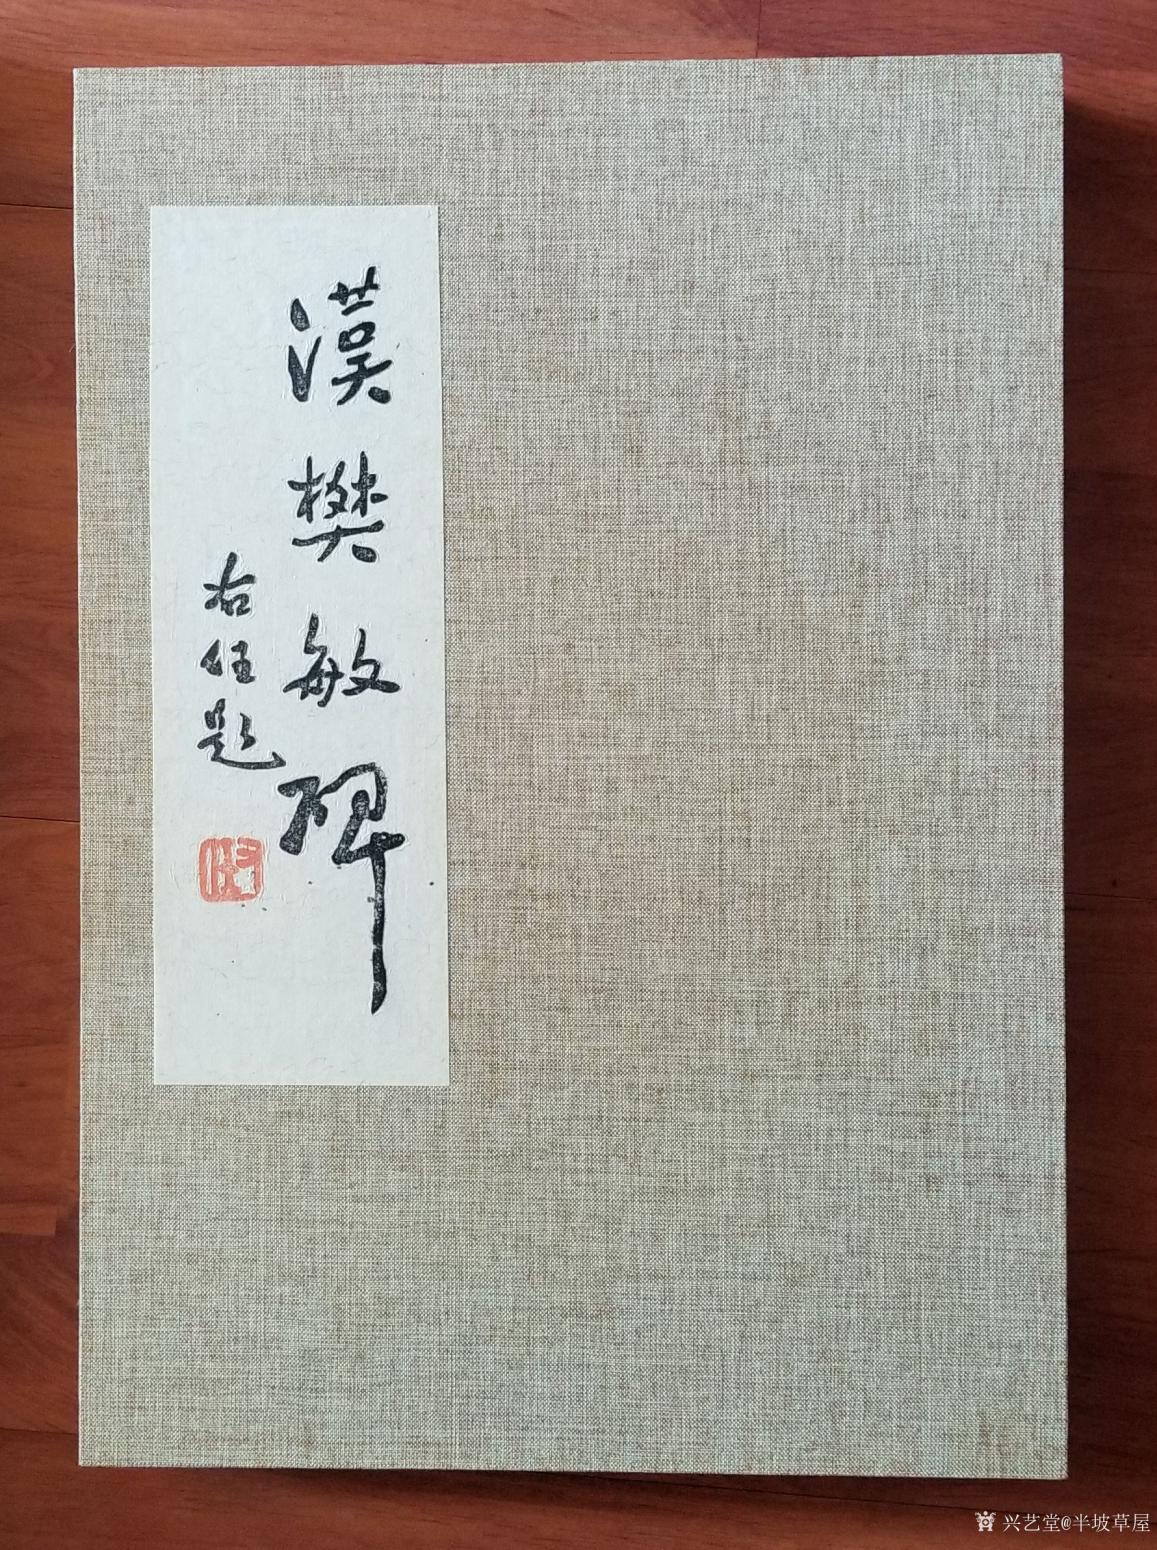 漢樊敏碑
右任題
兴艺堂@半坡草屋